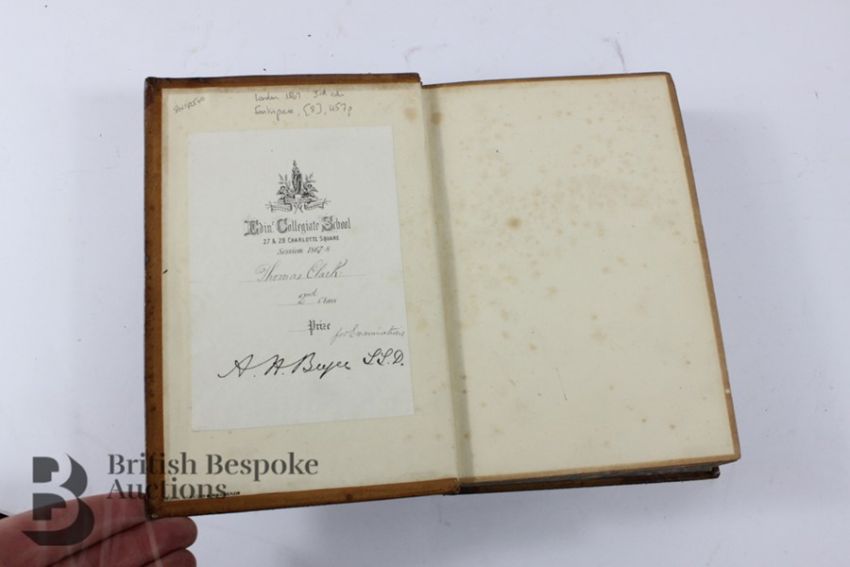 London 1867 3rd edn
Frontispiece, [8], 457p
Edin' Collegiate School
27 & 28 CHARLOTTE SQUARE
Session 1867-8
Thomas Clark
2nd Class
Prize for Examinations
A. H. Bryce LL.D.
British Bespoke
Auctions